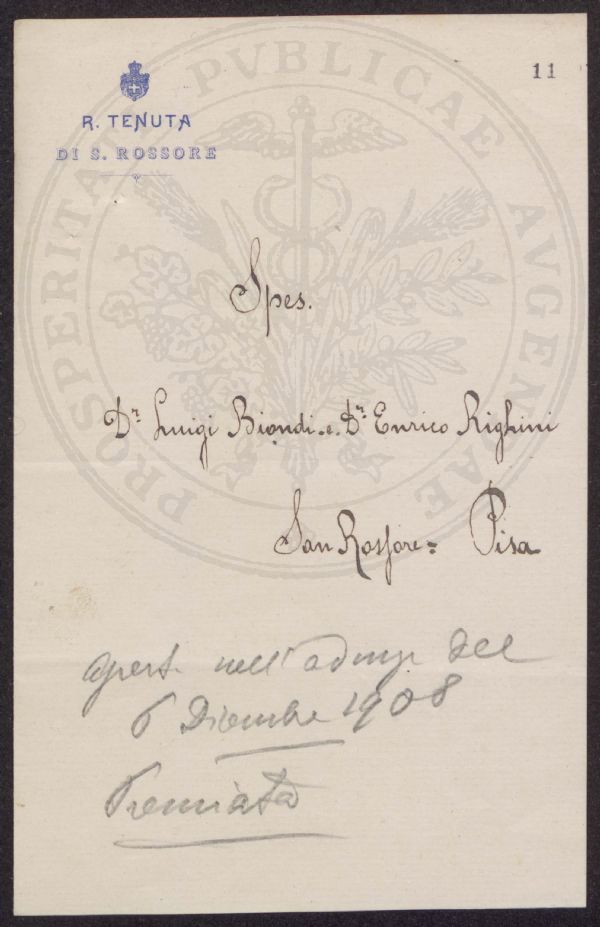 11
R. TENUTA
DI S. ROSSORE
PROSPERITATI PVBLICAE AVGENDAE
Spes.
Dr. Luigi Biondi. e. Dr. Enrico Righini
San Rossore = Pisa
nell'adunza del
6 Dicembre 1908
Premiata